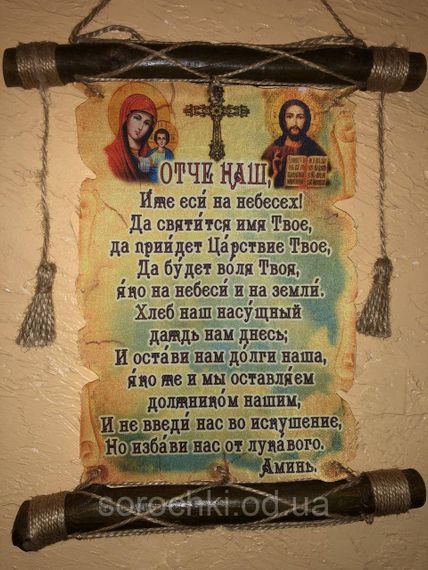 ОТЧЕ НАШ,
Иже еси́ на небесех!
Да святи́тся имя Твое,
да прии́дет Ца́рствие Твое,
Да бу́дет во́ля Твоя,
я́ко на небеси́ и на земли́.
Хлеб наш насу́щный
да́ждь нам днесь;
И оста́ви нам до́лги наша,
я́ко же и мы оставля́ем
должнико́м нашим,
И не введи́ нас во искушение,
Но изба́ви нас от лука́вого.
Аминь.
sorochki.od.ua